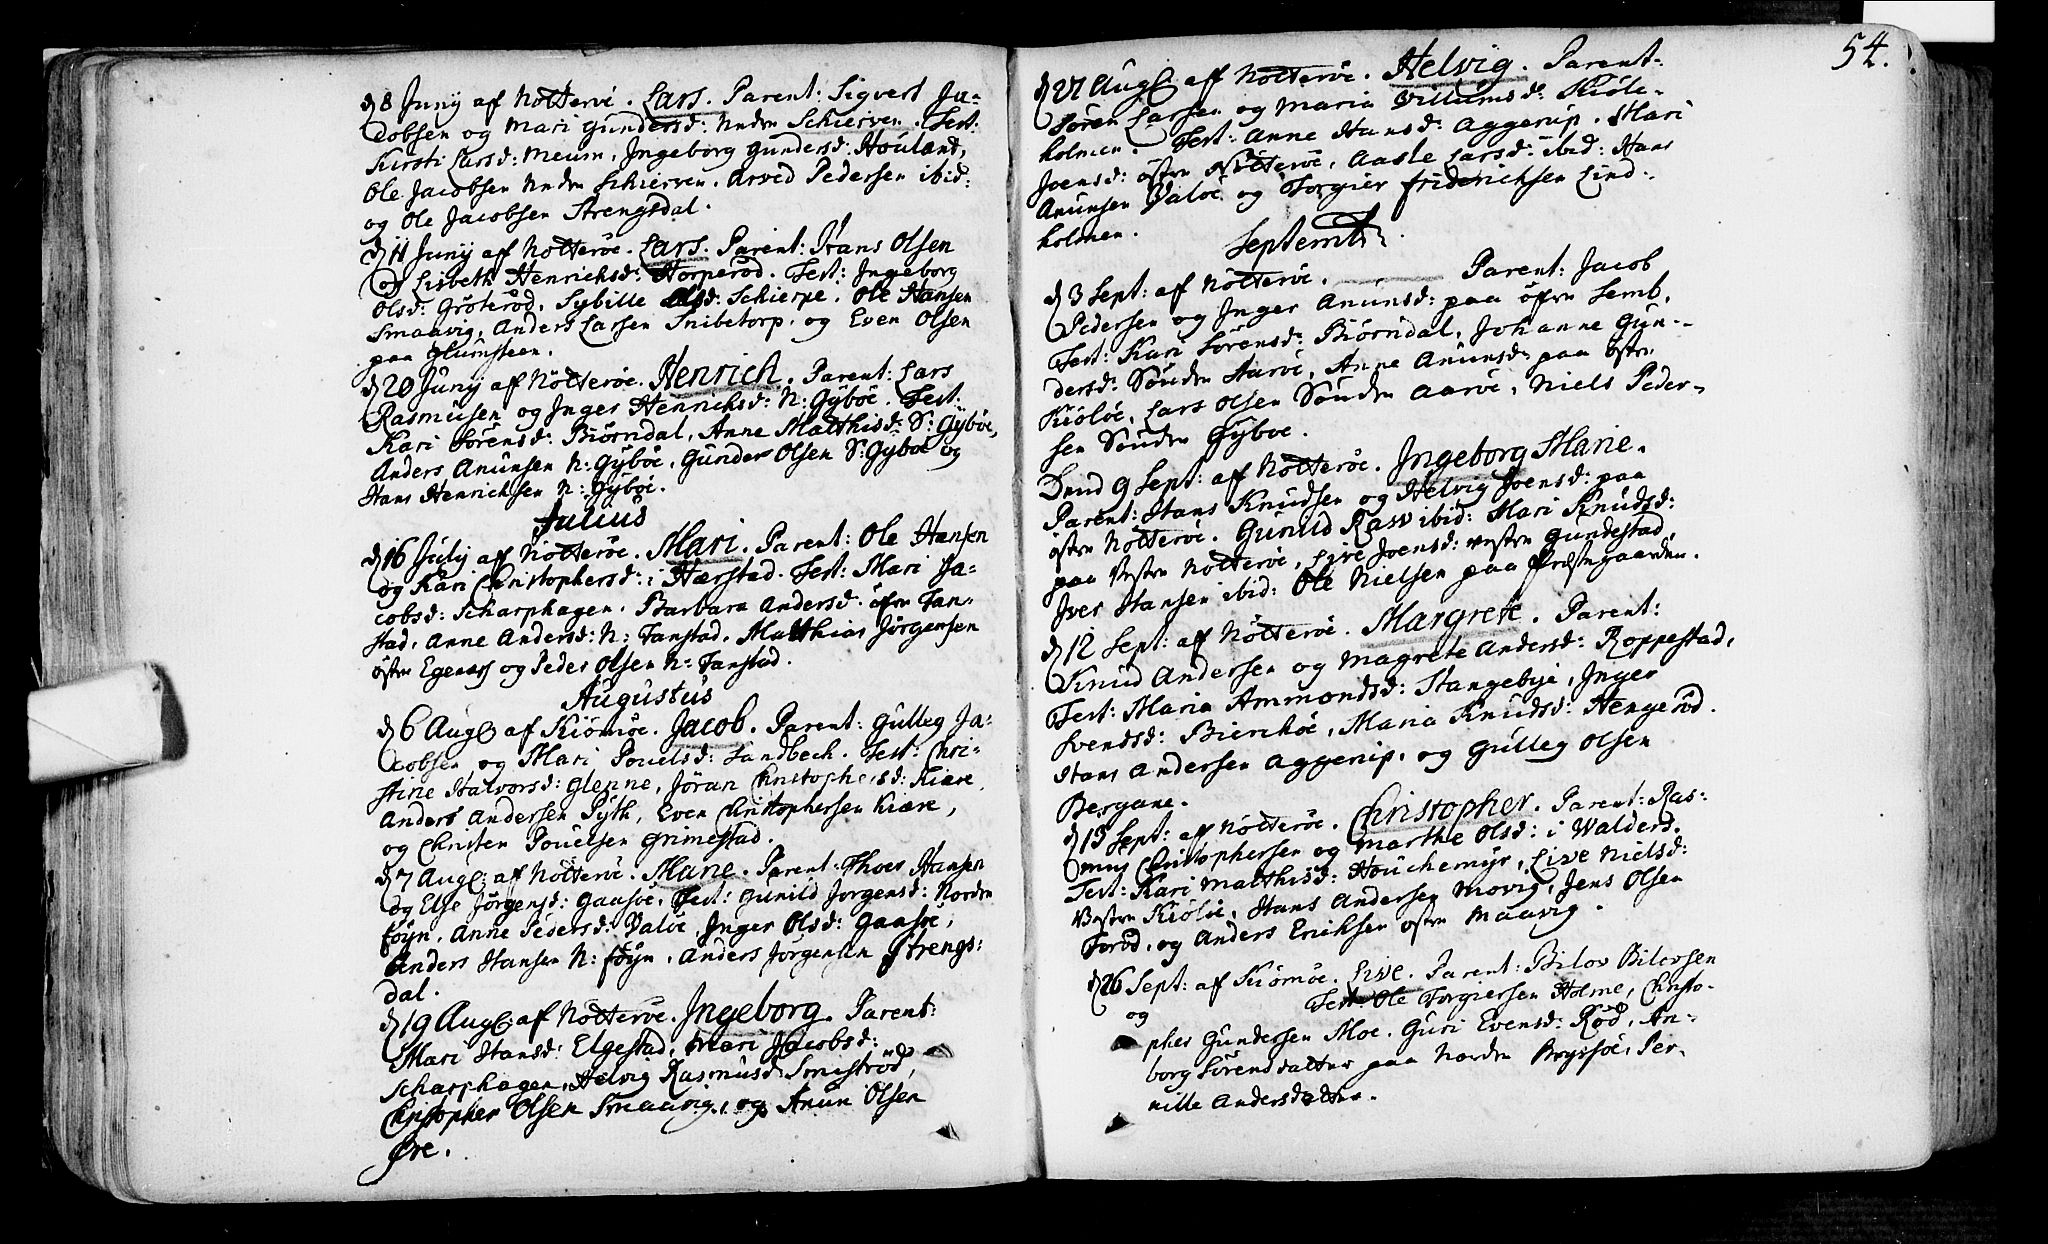 d 8 Junij af Nötteröe. Lars. Parent: Sigvert Ja-
cobsen og Mari Gundersd: Unden Schierven. Test:
Kirsti Larsd: Meum, Ingeborg Gundersd: Houland,
Ole Jacobsen Unden Schierven. Arved Pedersen ibid:
og Ole Jacobsen Strengsdal.
d 11 Junij af Nötteröe. Lars. Parent: Hans Olsen
og Lisbeth Henrichsd: Torperöd. Test: Ingeborg
Olsd: Gröteröd, Sybille Olsd: Schierpe. Ole Hansen
Smaavig, Anders Larsen Snibetorp. og Even Olsen
paa Glumsteen.
d 20 Junij af Nötteröe. Henrich. Parent: Lars
Rasmusen og Inger Henrichsd: N: Gyböe. Test:
Kari Sörensd: Biörndal, Anne Matthisd: S: Gyböe,
Anders Anunsen N: Gyböe, Gunder Olsen S: Gyböe og
Hans Henrichsen N: Gyböe.
Julius
d 16 Julij af Nötteröe. Mari. Parent: Ole Hansen
og Kari Christophersd: i Hærstad. Test: Mari Ja-
cobsd: Scharphagen. Barbara Andersd: öfre Fan-
stad, Anne Andersd: N: Fanstad. Matthias Jörgensen
östre Egenæs og Peder Olsen N: Fanstad.
Augustus
d 6 Aug: af Kiömöe. Jacob. Parent: Gulleg Ja-
cobsen og Mari Povelsd: Sandbeck. Test: Chri-
stine Halvorsd: Glenne, Jöran Christophersd: Kiære,
Anders Andersen Pyth, Even Christophersen Kiære,
og Christen Povelsen Grimestad.
d 7 Aug: af Nötteröe. Marie. Parent: Thoer Hansen
og Else Jörgensd: Gaasöe, Test: Gunild Jorgensd: Norden
föyn. Anne Pedersd: Valöe, Inger Olsd: Gaasöe,
Anders Hansen N: föyn. Anders Jorgensen Strengs:
dal.
d 19 Aug: af Nötteröe. Ingeborg. Parent:
Mari Hansd: Elgestad, Mari Jacobsd:
Scharphagen, Helvig Rasmusd: Smeströd,
Christopher Olsen Smaavig, og Anun Olsen
Öre.
54.
d 27 Aug: af Nötteröe. Helvig. Parent:
Sören Larsen og Maria Villumsd: Kiöle-
holmen. Test: Anne Hansd: Aggerup. Mari
Joensd: östen Nötteröe, Aasle Larsd: ibid: Hans
Anunsen Valöe og Torgier friderichsen Lind-
holmen.
Septemb:
d 3 Sept: af Nötteröe. Parent: Jacob
Pedersen og Inger Anunsd: paa öfre Semb,
Test: Kari Sörensd: Biörndal, Johanne Gun-
dersd: Sönden Aaröe, Anne Anunsd: paa östen
Kiölöe, Lars Olsen Sönden Aaröe, Niels Peder-
sen Sönden Gyboe.
Dend 9 Sept: af Nötteröe. Ingeborg Marie.
Parent: Hans Knudsen og Helvig Joensd: paa
östen Nötteröe. Gunild Rasv ibid: Mari Knudsd:
paa Vesten Nötteröe, Live Joensd: vesten Gundestad,
Iver Hansen ibid: Ole Nielsen paa Præstegaarden.
d 12 Sept: af Nötteröe. Margrete. Parent:
Knud Andersen og Magrete Andersd: Roppestad,
Test: Maria Ammondsd: Stangebye, Inger
Svendsd: Bierchöe, Maria Knudsd: Hengeröd.
Hans Andersen Aggerup. og Gulleg Olsen
Bergane.
d 15 Sept: af Nötteröe. Christopher. Parent: Ras:
mus Christophersen og Marthe Olsd: i Walders.
Test: Kari Matthisd: Houchemyr, Live Nielsd:
Vesten Kiölöe, Hans Andersen Movig, Jens Olsen
Toröd, og Anders Eriksen östen Maavig.
d 26 Sept: af Kiömöe. Live. Parent: Bilov Bilovsen
og Test: Ole Torgiersen Holme, Christo-
pher Gundersen Moe. Guri Evensd: Röd, An-
borg Sörensdatter paa Norden Brysöe, Per-
nille Andersdatter.